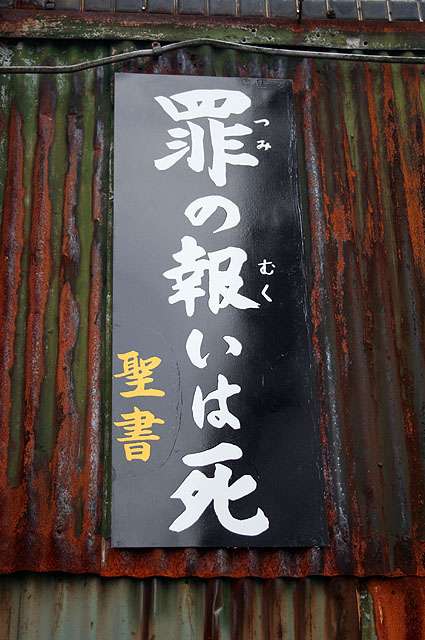 罪の報いは死
つみ
むく
聖書